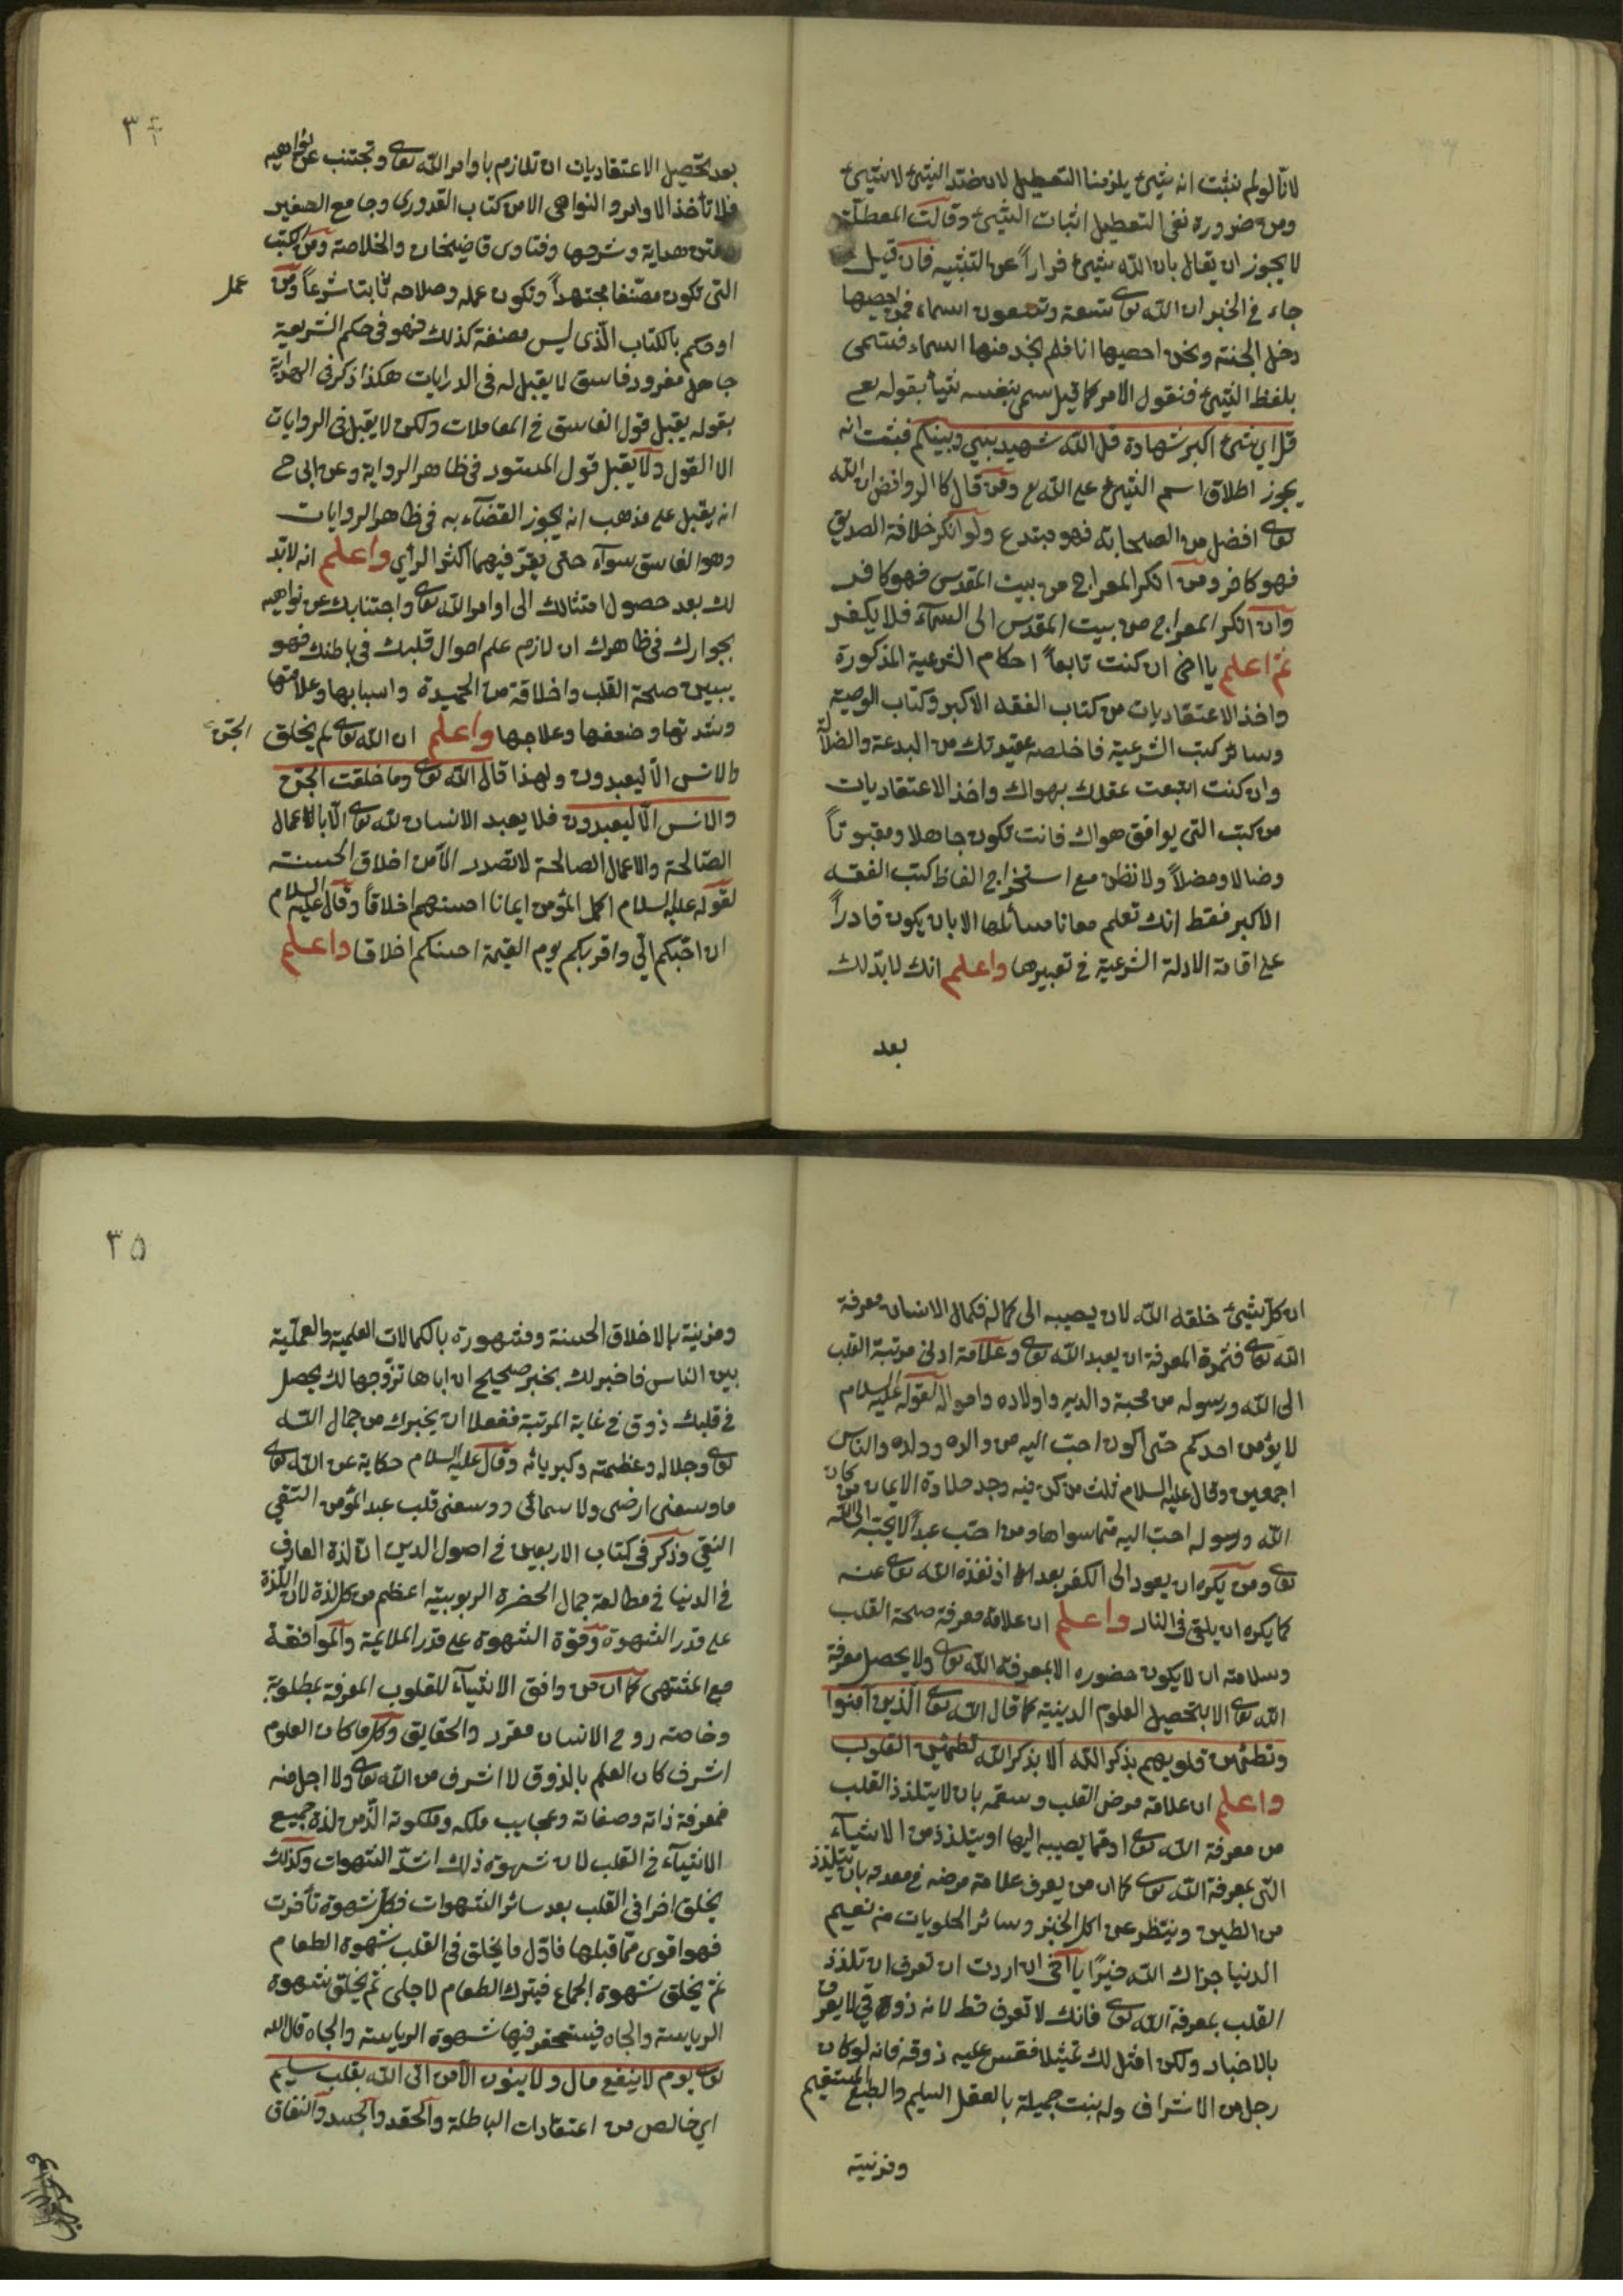 لانا لو لم نثبت انه شيئ يلزمنا التعطيل لان ضد الشيئ لا شيئ
ومن ضرورة نفى التعطيل اثبات الشيئ وقالت المعطلة
لا يجوز ان يقال بان الله شيئ فرارا عن التشبيه فان قيل
جاء فى الخبر ان الله تعالى تسعة وتسعون اسماء فمن احصيها
دخل الجنة ونحن احصيها انا فلم نجد منها اسماء فتسمى
بلفظ الشيئ فنقول الامر كما قيل سمى بنفسه شيئا بقوله تعـ
قل اى شيئ اكبر شهادة قل الله شهيد بينى وبينكم فثبت انه
يجوز اطلاق اسم الشيئ على الله تع ومن قال كالروافض ان الله
تعالى افضل من الصحابة فهو مبتدع ولو انكر خلافة الصديق
فهو كافر ومن انكر المعراج من بيت المقدس فهو كافر
وان انكر المعراج من بيت المقدس الى السمآء فلا يكفر
ثم اعلم يا اخى ان كنت تابعا احكام الشرعية المذكورة
واخذ الاعتقاديات من كتاب الفقه الاكبر وكتاب الوصية
وسائر كتب الشرعية فاخلصه عقيدتك من البدعة والضلآ
وان كنت اتبعت عقلك بهواك واخذ الاعتقاديات
من كتب التى يوافق هواك فانت تكون جاهلا ومقبوتا
وضالا ومضلا ولا تظن مع استخراج الفاظ كتب الفقه
الاكبر فقط انك تعلم معانا مسائلها الا بان يكون قادرا
على اقامة الادلة الشرعية فى تعبيرها واعلم انك لا بد لك
بعد
٣٤
بعد تحصيل الاعتقاديات ان تلازم باوامر الله تعالى وتجتنب عن نواهيه
فلا تأخذ الاوامر والنواهى الا من كتاب القدورى وجامع الصغير
متن هداية وشرحها وفتاوى قاضيخان والخلاصة ومن كتب
التى تكون مصنفا مجتهدا وتكون عمله وصلاحه ثابتا شرعا ومن عمل
او حكم بالكتاب الذى ليس مصنفة كذلك فهو فى حكم الشريعة
جاهل مغرور وفاسق لا يقبل له فى الدرايات هكذا ذكر فى الهداية
بقوله يقبل قول الفاسق فى المعاملات ولكن لا يقبل فى الروايات
الا القول ولا يقبل قول المستور فى ظاهر الرواية وعن ابى ح
انه يقبل على مذهب انه يجوز القضآء به فى ظاهر الروايات
وهو الفاسق سوآء حتى يعتبر فيهما اكثر الرأي واعلم انه لا بد
لك بعد حصول امتثالك الى اوامر الله تعالى واجتنابك عن نواهيه
بجوارك فى ظاهرك ان لازم علم احوال قلبك فى باطنك فهو
يبين صحة القلب واخلاقة من الحميدة واسبابها وعلامتها
وشدتها وضعفها وعلاجها واعلم ان الله تعالى لم يخلق الجن
والانس الا ليعبدون ولهذا قال الله تعالى وما خلقت الجن
والانس الا ليعبدون فلا يعبد الانسان لله تعالى الا بالاعمال
الصالحة والاعمال الصالحة لا تصدر الا من اخلاق الحسنة
لقوله عليه السلام اكمل المؤمن ايمانا احسنهم اخلاقا وقال عليه السلام
ان احبكم الي واقربكم يوم القيمة احسنكم اخلاقا واعلم
ان كل شيئ خلقه الله لان يصيبه الى كماله فكمال الانسان معرفة
الله تعالى فثمرة المعرفة ان يعبد الله تعالى وعلامة ادنى مرتبة القلب
الى الله ورسوله من محبة والديه واولاده وامواله لقوله عليه السلام
لا يؤمن احدكم حتى اكون احب اليه من والده وولده والناس
اجمعين وقال عليه السلام ثلث من كن فيه وجد حلاوة الايمان من كان
الله ورسوله احب اليه مما سواها ومن احب عبدا لا يحبه الى الله
تعالى ومن يكره ان يعود الى الكفر بعد اذ نقذه الله تعالى عنه
كما يكره ان يلقى فى النار واعلم ان علامة معرفة صحة القلب
وسلامته ان لا يكون حضوره الا بمعرفة الله تعالى ولا يحصل معرفة
الله تعالى الا بتحصيل العلوم الدينية كما قال الله تعالى الذين آمنوا
وتطمئن قلوبهم بذكر الله الا بذكر الله تطمئن القلوب
واعلم ان علامة مرض القلب وسقمه بان لا يتلذذ القلب
من معرفة الله تعالى او مما يصيبه اليها او يتلذذ من الاشيآء
التى بمعرفة الله تعالى كما ان من يعرف علامة مرضه فى معدته بان يتلذذ
من الطين وينتظر عن اكل الخبز وسائر الحلويات من نعيم
الدنيا جزاك الله خيرا يا اخى ان اردت ان تعرف ان تلذذ
القلب بمعرفة الله تعالى فانك لا تعرف قط لانه ذوقى لا يعرف
بالاخبار ولكن امثل لك تمثيلا فقس عليه ذوقه فانه لو كان
رجل من الاشراف وله بنت جميلة بالعقل السليم والطبع المستقيم
ومزنية
٣٥
ومزنية بالاخلاق الحسنة ومشهورة بالكمالات العلمية والعملية
بين الناس فاخبر لك بخبر صحيح ان اباها تزوجها لك يحصل
فى قلبك ذوق فى غاية المرتبة ففعلا ان يخبرك من جمال الله
تعالى وجلاله وعظمته وكبريائه وقال عليه السلام حكاية عن الله تعالى
ما وسعنى ارضى ولا سمائى ووسعنى قلب عبد المؤمن التقي
النقي وذكر فى كتاب الاربعين فى اصول الدين ان لذة العارف
فى الدنيا فى مطالعة جمال الحضرة الربوبيتية اعظم من كل لذة لان اللذة
على قدر الشهوة وقوة الشهوة على قدر الملايمة والموافقة
مع المشتهى كما ان من وافق الاشيآء للقلوب المعرفة بمطلوبة
وخاصته روح الانسان مقرر والحقايق وكل ما كان العلوم
اشرف كان العلم بالذوق لا اشرف من الله تعالى ولا اجل منه
فمعرفة ذاته وصفاته وعجايب ملكه وملكوته الذ من لذة جميع
الاشيآء فى القلب لان شهوة ذلك اشد الشهوات وكذلك
يخلق اخرا فى القلب بعد سائر الشهوات فكل شهوة تأخرت
فهو اقوى مما قبلها فاول ما يخلق فى القلب شهوة الطعام
ثم يخلق شهوة الجماع فيترك الطعام لاجلى ثم يخلق شهوة
الرياسة والجاه فيستحقر فيها شهوة الرياسة والجاه قال الله
تعالى يوم لا ينفع مال ولا بنون الا من اتى الله بقلب سليم
اي خالص من اعتقادات الباطلة والحقد والحسد والنفاق